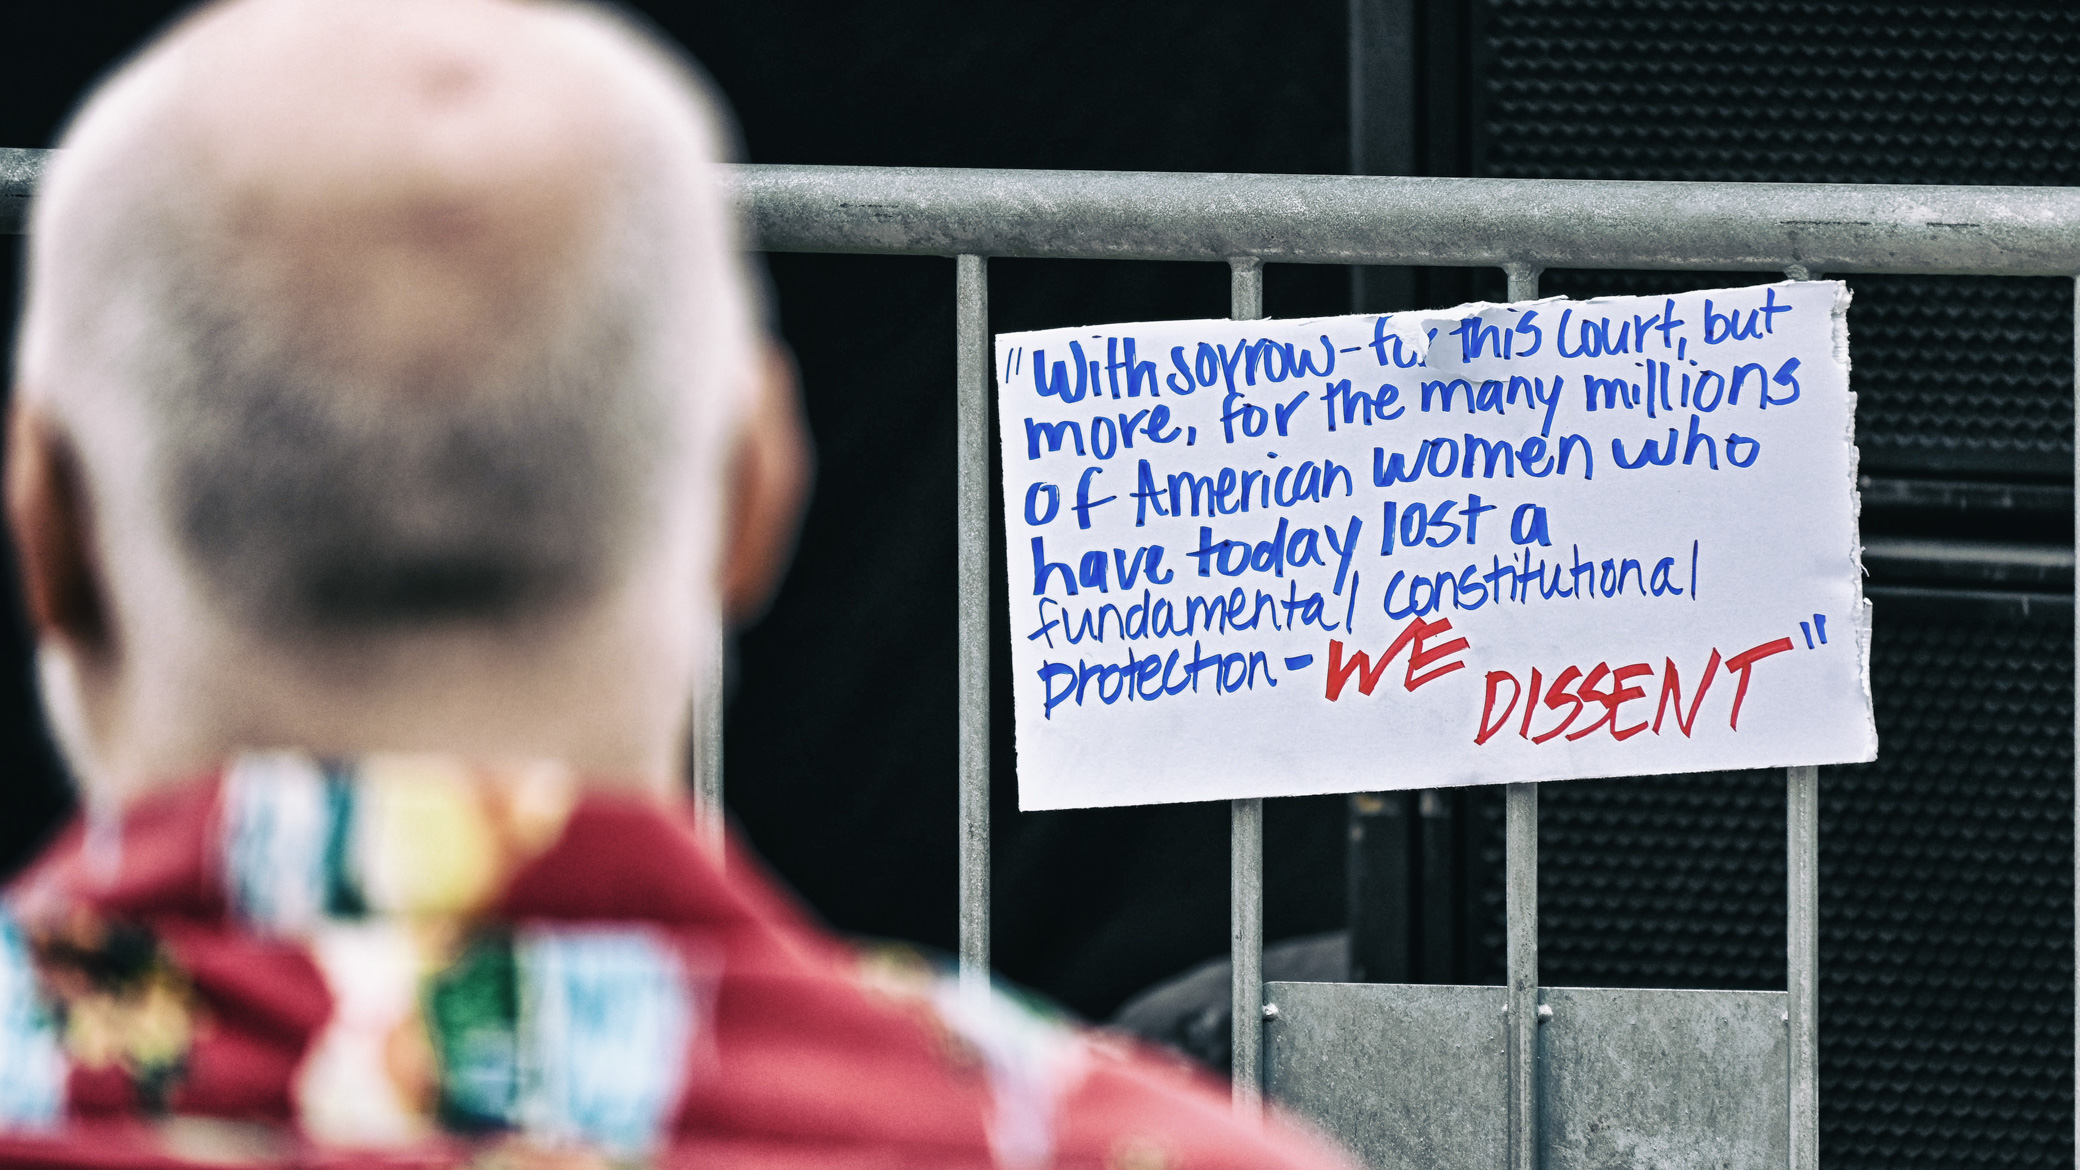 "With sorrow-for this Court, but
more, for the many millions
of American women who
have today lost a
fundamental constitutional
protection-WE
DISSENT"